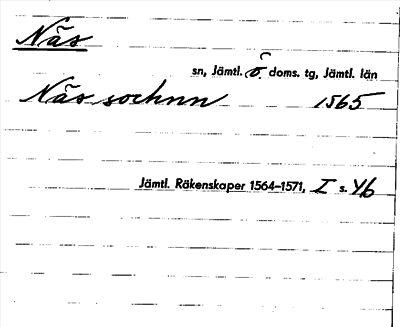 Näs
sn, Jämtl. ö doms. tg, Jämtl. län
Näs sochnn 1565
Jämtl. Räkenskaper 1564-1571, I s. 46